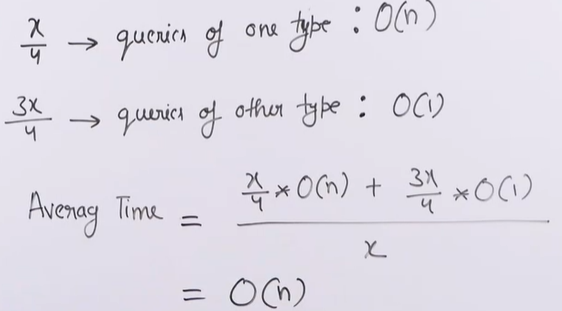 x/4 → queries of one type : O(n)
3x/4 → queries of other type : O(1)
Averag Time = (x/4 * O(n) + 3x/4 * O(1)) / x
= O(n)